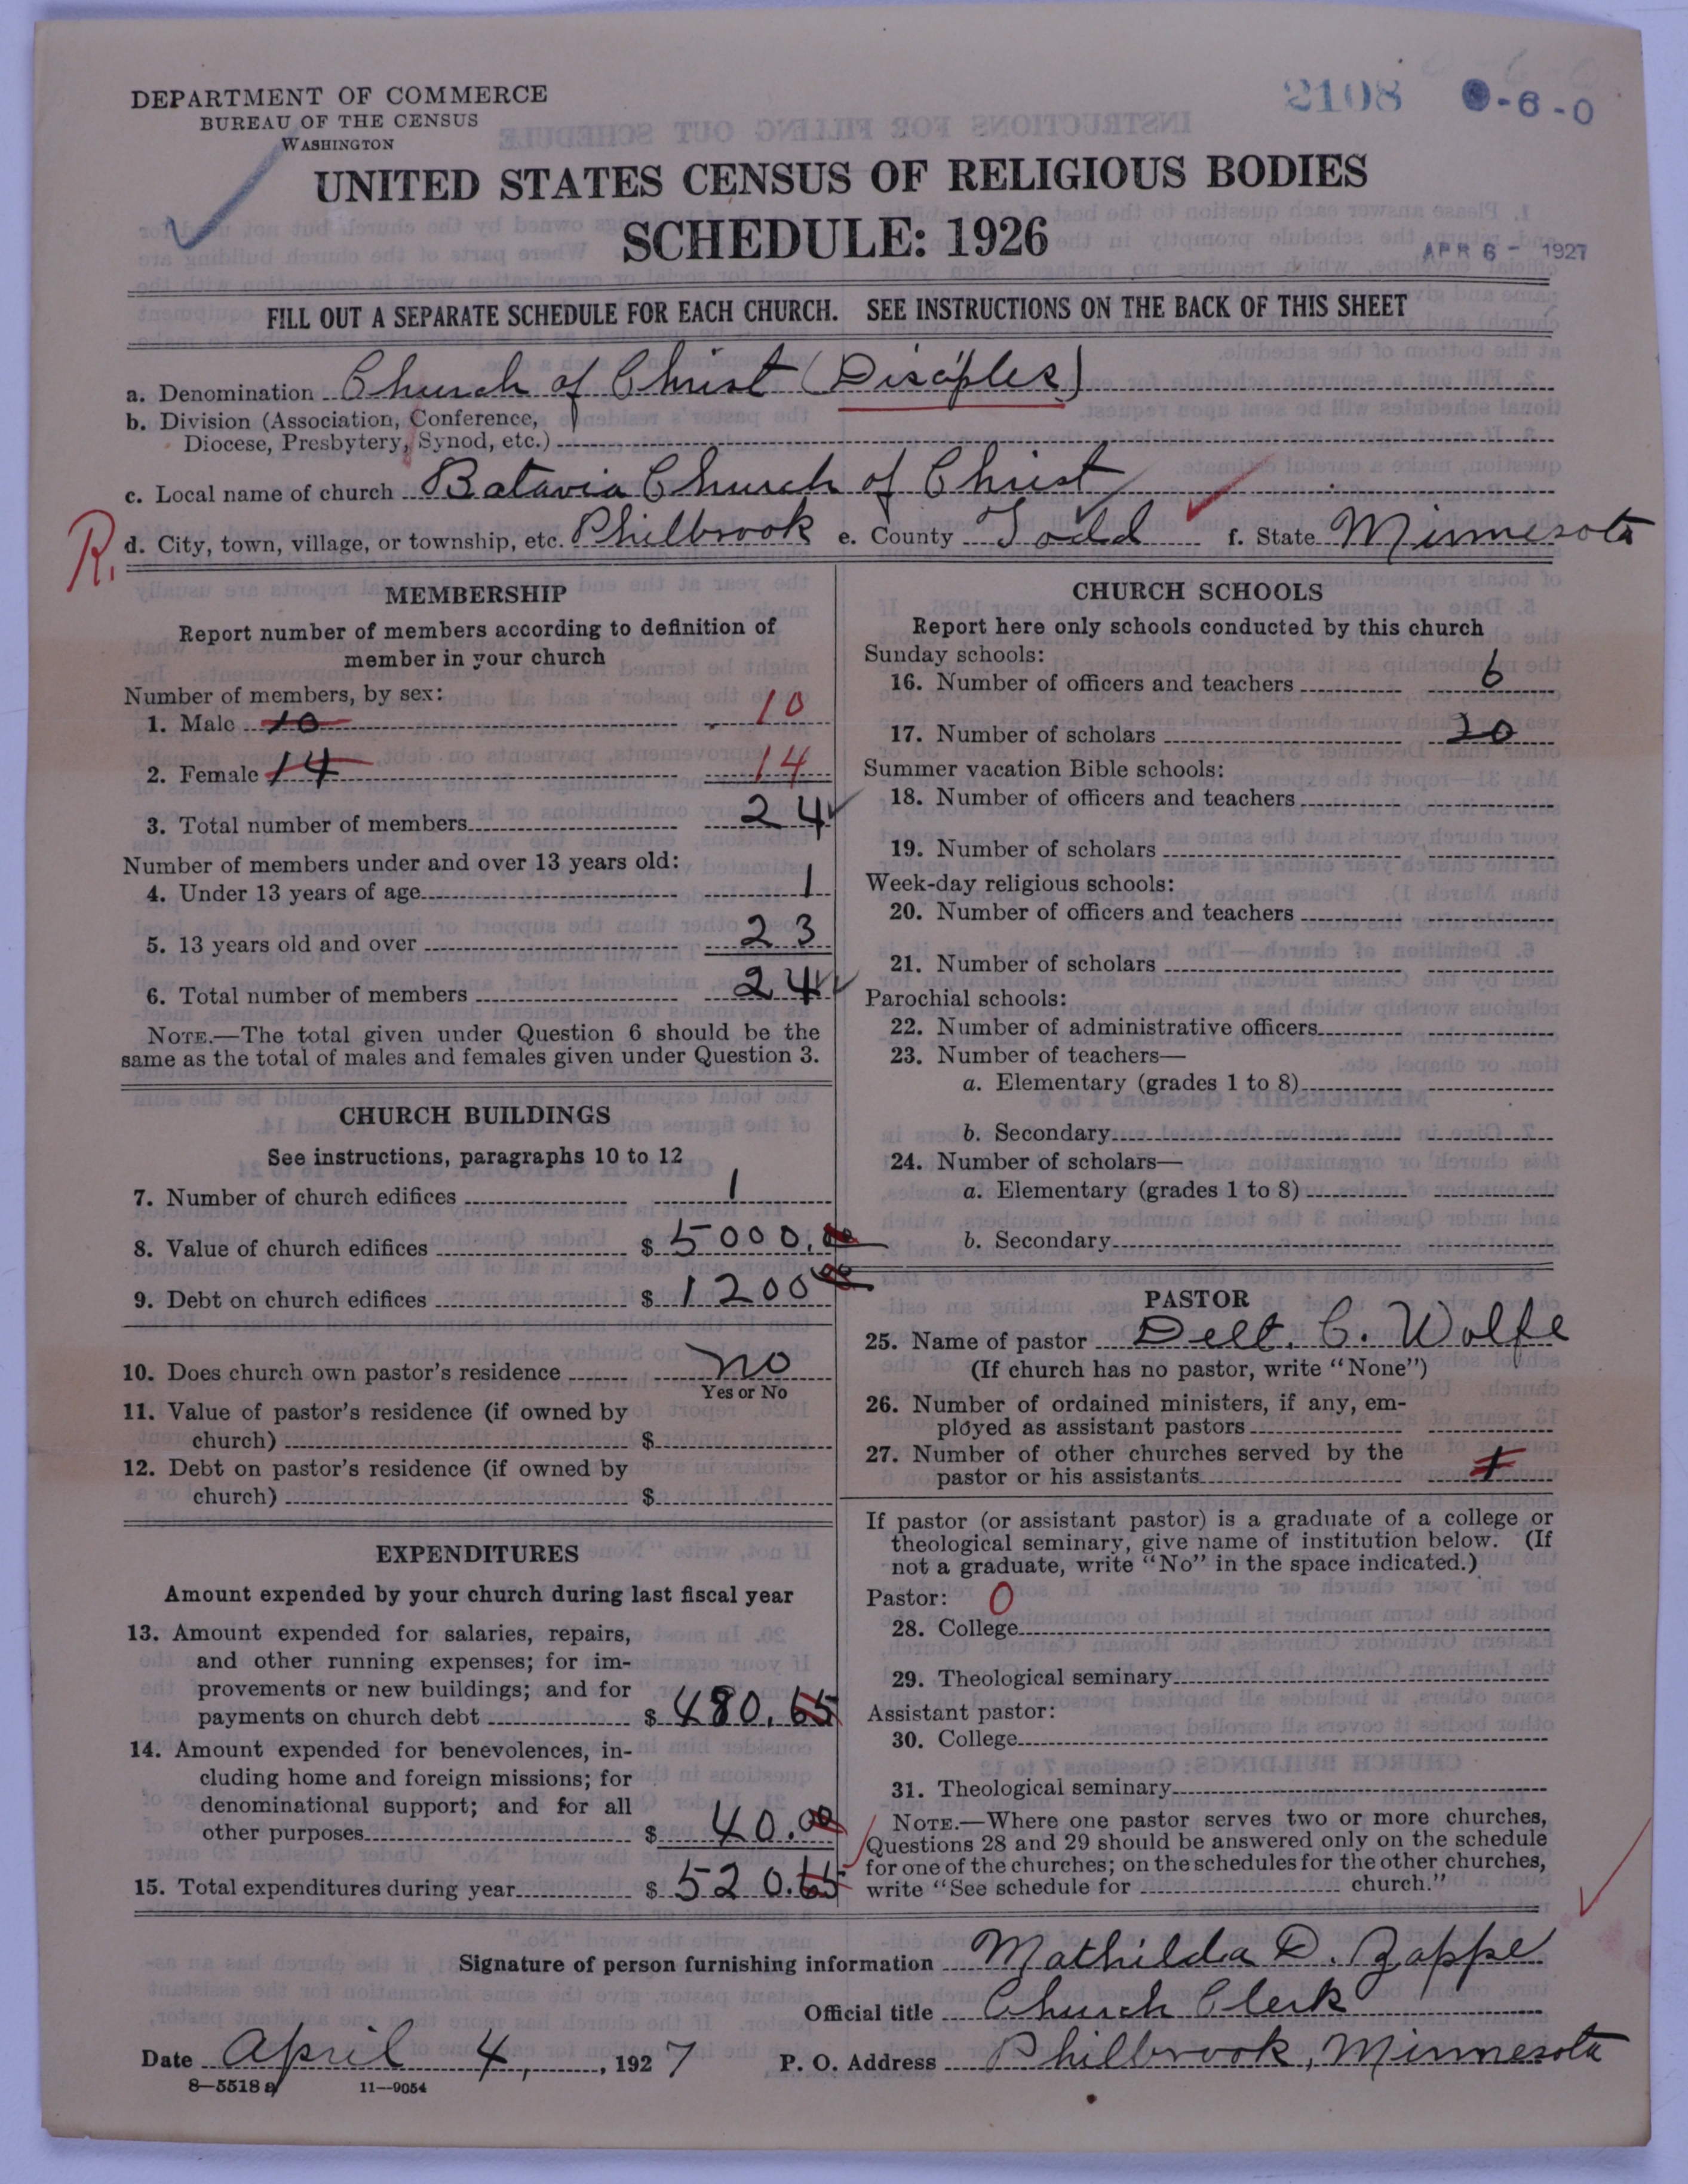 DEPARTMENT OF COMMERCE
BUREAU OF THE CENSUS
WASHINGTON
2108 -6-0
UNITED STATES CENSUS OF RELIGIOUS BODIES
SCHEDULE: 1926
APR 6 - 1927
FILL OUT A SEPARATE SCHEDULE FOR EACH CHURCH. SEE INSTRUCTIONS ON THE BACK OF THIS SHEET
a. Denomination Church of Christ (Disciples)
b. Division (Association, Conference,
Diocese, Presbytery, Synod, etc.)
c. Local name of church Batavia Church of Christ
R.
d. City, town, village, or township, etc. Philbrook e. County Todd f. State Minnesota
MEMBERSHIP
Report number of members according to definition of
member in your church
Number of members, by sex:
1. Male 10 10
2. Female 14 14
3. Total number of members 24
Number of members under and over 13 years old:
4. Under 13 years of age 1
5. 13 years old and over 23
6. Total number of members 24
NOTE.—The total given under Question 6 should be the
same as the total of males and females given under Question 3.
CHURCH BUILDINGS
See instructions, paragraphs 10 to 12
7. Number of church edifices 1
8. Value of church edifices $ 5000.00
9. Debt on church edifices $ 1200 00
10. Does church own pastor's residence no
Yes or No
11. Value of pastor's residence (if owned by
church) $
12. Debt on pastor's residence (if owned by
church) $
EXPENDITURES
Amount expended by your church during last fiscal year
13. Amount expended for salaries, repairs,
and other running expenses; for im-
provements or new buildings; and for
payments on church debt $ 480.65
14. Amount expended for benevolences, in-
cluding home and foreign missions; for
denominational support; and for all
other purposes $ 40.00
15. Total expenditures during year $ 520.65
CHURCH SCHOOLS
Report here only schools conducted by this church
Sunday schools:
16. Number of officers and teachers 6
17. Number of scholars 20
Summer vacation Bible schools:
18. Number of officers and teachers
19. Number of scholars
Week-day religious schools:
20. Number of officers and teachers
21. Number of scholars
Parochial schools:
22. Number of administrative officers
23. Number of teachers—
a. Elementary (grades 1 to 8)
b. Secondary
24. Number of scholars—
a. Elementary (grades 1 to 8)
b. Secondary
PASTOR
25. Name of pastor Delt. C. Wolfe
(If church has no pastor, write "None")
26. Number of ordained ministers, if any, em-
ployed as assistant pastors
27. Number of other churches served by the
pastor or his assistants
If pastor (or assistant pastor) is a graduate of a college or
theological seminary, give name of institution below. (If
not a graduate, write "No" in the space indicated.)
Pastor: 0
28. College
29. Theological seminary
Assistant pastor:
30. College
31. Theological seminary
NOTE.—Where one pastor serves two or more churches,
Questions 28 and 29 should be answered only on the schedule
for one of the churches; on the schedules for the other churches,
write "See schedule for church."
Signature of person furnishing information Mathilda D. Zappe
Official title Church Clerk
Date April 4, 1927 P. O. Address Philbrook, Minnesota
8—5518 a 11—9054